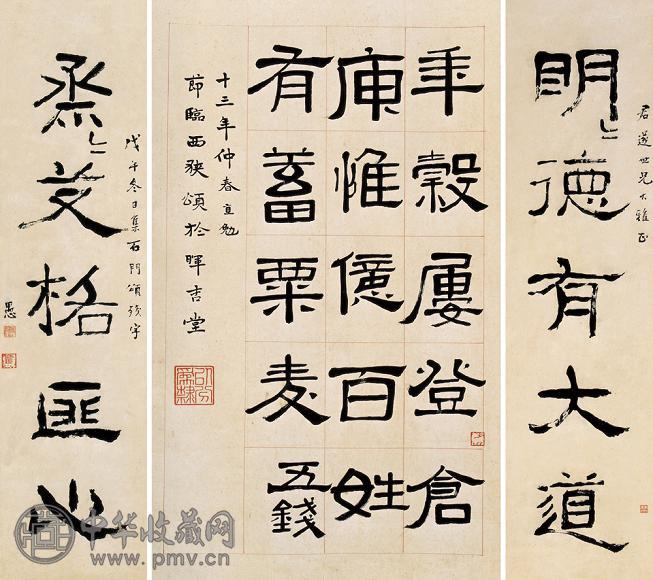 君遂世兄大雅正
明〻德有大道
年穀屢登倉
庾惟億百姓
有蓄粟麦五錢
十三年仲春直勉
節臨西狹頌於暉吉堂
戊午冬日集石門頌殘字
烝〻艾格匪
愚
中华收藏网
www.pmv.cn